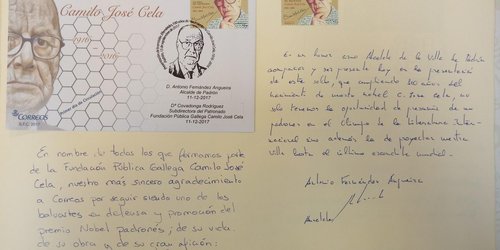 Camilo José Cela
1916
2016
CORREOS
S.P.C. 2017
Primer día de Circulación
D. Antonio Fernández Angueira
Alcalde de Padrón
11-12-2017
Dª Covadonga Rodríguez
Subdirectora del Patronato
Fundación Pública Gallega Camilo José Cela
11-12-2017
En nombre de todas las que formamos parte
de la Fundación Pública Gallega Camilo José
Cela, nuestro más sincero agradecimiento
a Correos por seguir siendo uno de los
baluartes en defensa y promoción del
premio Nobel padronés; de su vida,
de su obra y de su gran afición:
Es un honor como Alcalde de la Villa de Padrón
acompañar y ser presente hoy en la presentación
de este sello, que cumpliendo 100 años del
nacimiento de nuestro nobel C. José Cela, no
sólo tenemos la oportunidad de presumir de un
padronés en el olimpo de la Literatura Inter-
nacional sino además la de proyectar nuestra
villa hasta el último mundial.-
Antonio Fernández Angueira
Alcalde